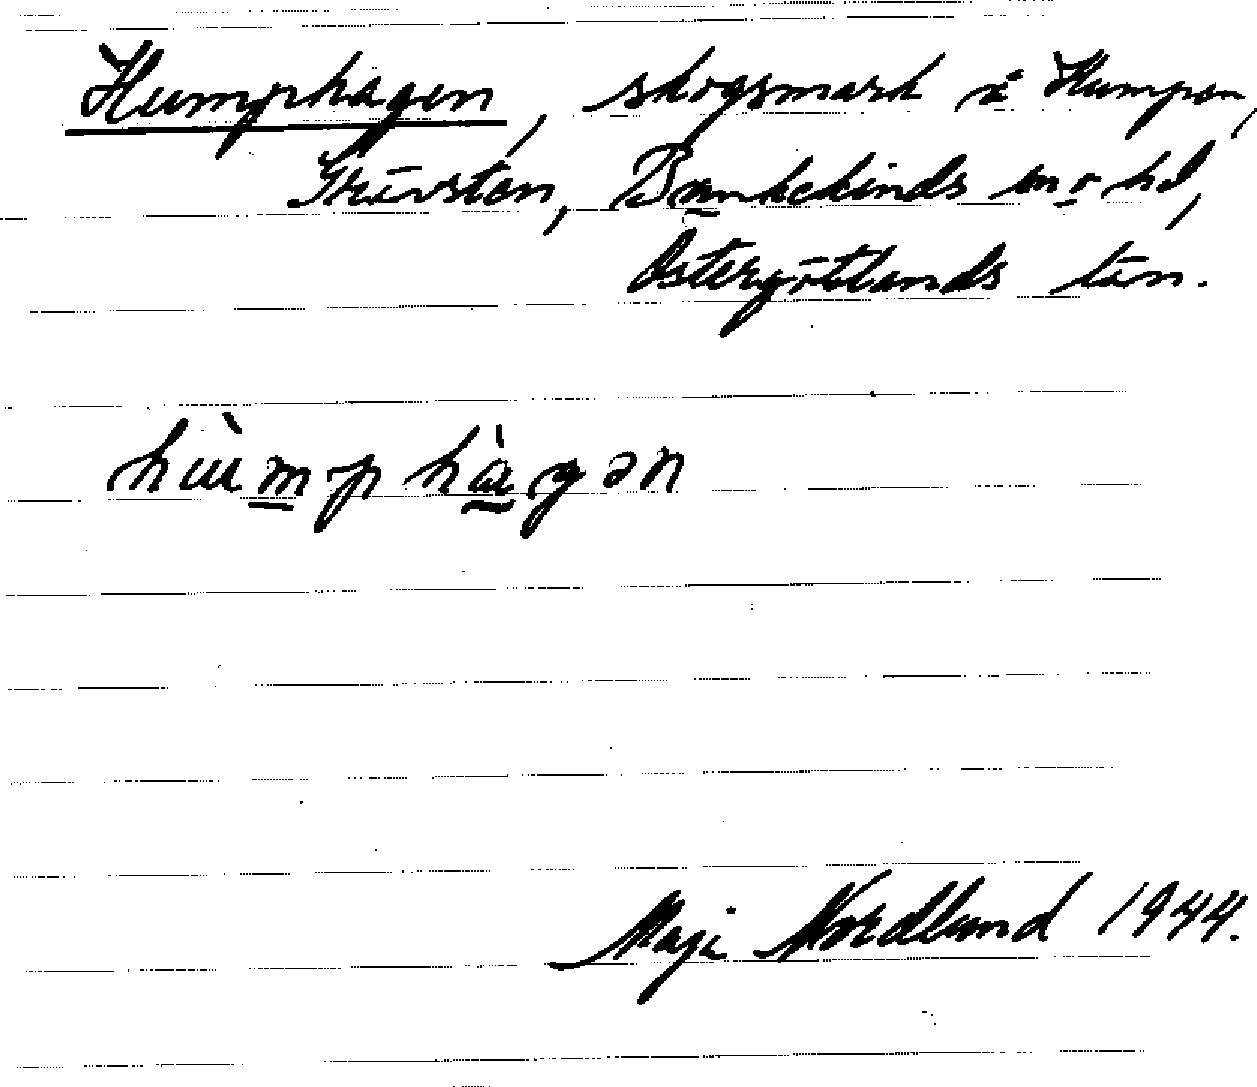 Humphagen, skogsmark i Humpen,
Skärstan, Bankekinds srn o hd,
Östergötlands län.
hùmphàgən
Maji Nordlund 1944.